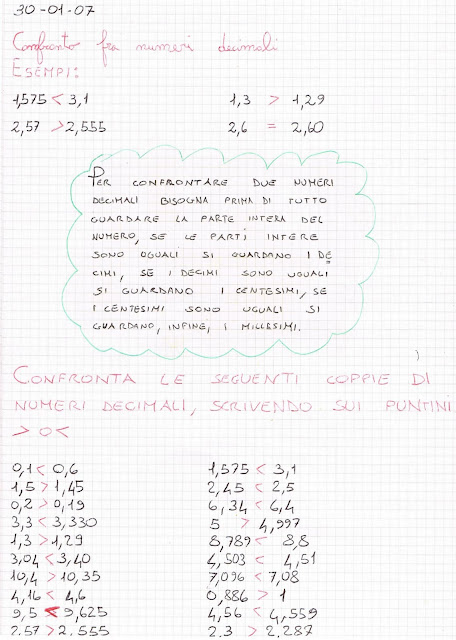 30-01-07
Confronto fra numeri decimali
ESEMPI:
1,575 < 3,1 1,3 > 1,29
2,57 > 2,555 2,6 = 2,60
PER CONFRONTARE DUE NUMERI
DECIMALI BISOGNA PRIMA DI TUTTO
GUARDARE LA PARTE INTERA DEL
NUMERO, SE LE PARTI INTERE
SONO UGUALI SI GUARDANO I DE
CIMI, SE I DECIMI SONO UGUALI
SI GUARDANO I CENTESIMI, SE
I CENTESIMI SONO UGUALI SI
GUARDANO, INFINE, I MILLESIMI.
CONFRONTA LE SEGUENTI COPPIE DI
NUMERI DECIMALI, SCRIVENDO SUI PUNTINI
> O <
0,1 < 0,6 1,575 < 3,1
1,5 > 1,45 2,45 < 2,5
0,2 > 0,19 6,34 < 6,4
3,3 < 3,330 5 > 4,997
1,3 > 1,29 8,789 < 8,8
3,04 < 3,40 4,503 < 4,51
10,4 > 10,35 7,096 < 7,08
4,16 < 4,6 0,886 > 1
9,5 < 9,625 4,56 < 4,559
2,57 > 2,555 2,3 > 2,287